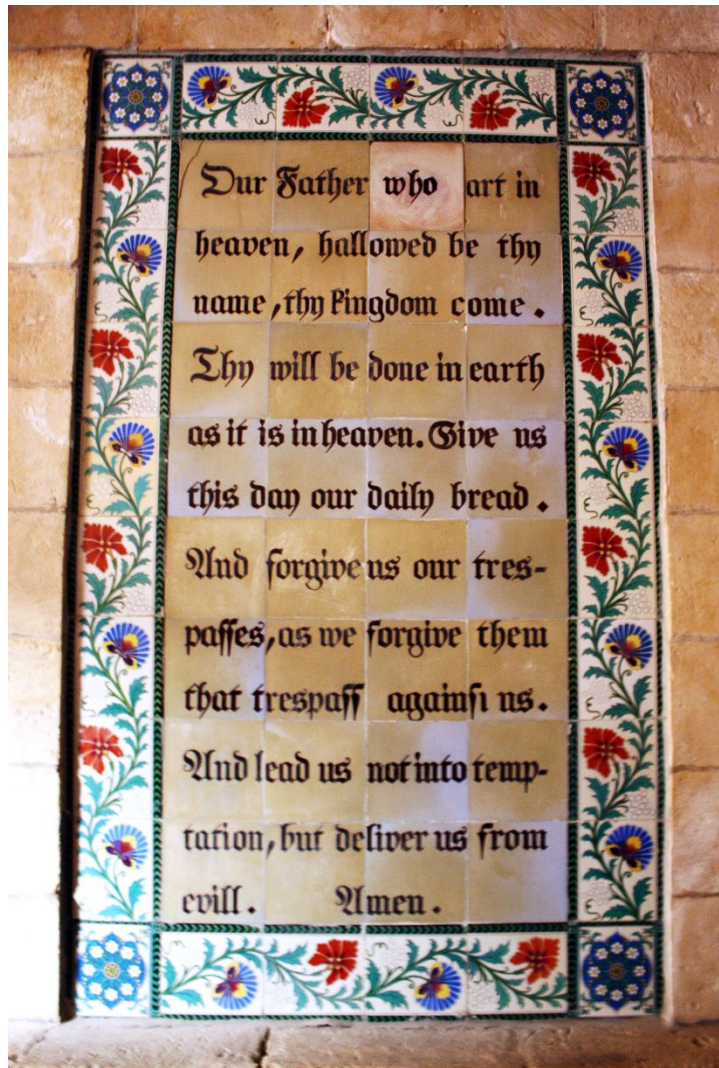 Our Father who art in
heaven, hallowed be thy
name, thy kingdom come.
Thy will be done in earth
as it is in heaven. Give us
this day our daily bread.
And forgive us our tres-
paſſes, as we forgive them
that treſpaſſ againſt us.
And lead us not into temp-
tation, but deliver us from
evill. Amen.